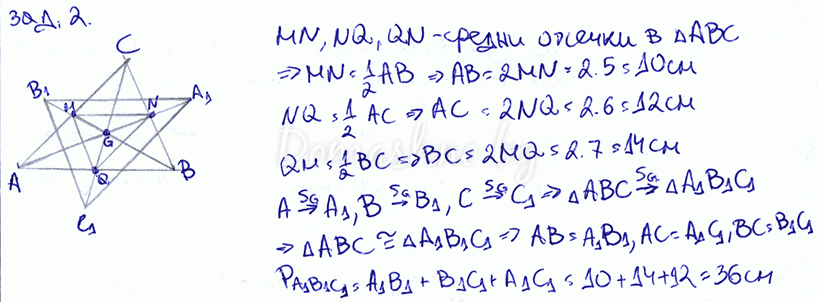 Зад. 2.
C
B₁ M N A₁
G
A Q B
C₁
MN, NQ, QN - средни отсечки в △ABC
=> MN = 1/2 AB => AB = 2MN = 2.5 = 10см
NQ = 1/2 AC => AC = 2NQ = 2.6 = 12см
QM = 1/2 BC => BC = 2MQ = 2.7 = 14см
A →(S_G) A₁, B →(S_G) B₁, C →(S_G) C₁ => △ABC →(S_G) △A₁B₁C₁
=> △ABC ≅ △A₁B₁C₁ => AB = A₁B₁, AC = A₁C₁, BC = B₁C₁
P_A₁B₁C₁ = A₁B₁ + B₁C₁ + A₁C₁ = 10 + 14 + 12 = 36см